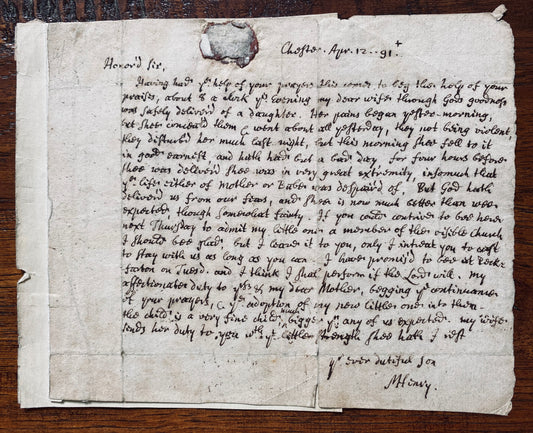 Chester. Apr. 12. 91.
Honor'd Sir,
Having had ye help of your prayers this comes to beg the help of your
praises, about 8 a clock ys evening my dear wife through Gods goodness
was safely deliver'd of a daughter. Her pains began yester-morning,
but shee conceal'd them & went about all yesterday, they not being violent,
they disturb'd her much last night, but this morning shee fell to it
in good earnest and hath had but a bad day. for four hours before
shee was deliver'd shee was in very great extremity, insomuch that
ye life either of Mother or Babe was despair'd of. But God hath
deliver'd us from our fears, and shee is now much better than wee
expected though somewhat fainty. If you could contrive to bee here
next Thursday to admit my little one a member of the visible church
I should bee glad, but I leave it to you, only I intreat you to cast
to stay with us as long as you can I have promis'd to bee at
on Tuesd. and I think I shal perform if the Lord will. my
affectionate duty to yrs. & my dear Mother, begging ye continuance
of your prayers, & ye adoption of my new little one into them
the child is a very fine child, much bigger yn any of us expected. my wife
sends her duty to you wth ye little strength shee hath I rest
yr ever dutiful son
MHenry.